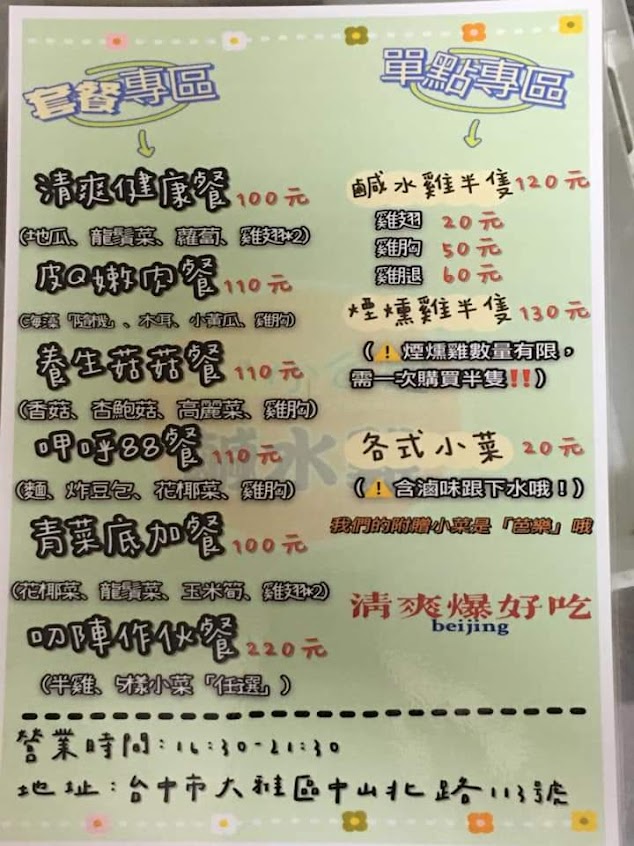 套餐專區
清爽健康餐100元
(地瓜、龍鬚菜、蘿蔔、雞翅*2)
皮Q嫩肉餐110元
(海藻「隨機」、木耳、小黃瓜、雞胸)
養生菇菇餐110元
(香菇、杏鮑菇、高麗菜、雞胸)
呷呼88餐110元
(麵、炸豆包、花椰菜、雞胸)
青菜底加餐100元
(花椰菜、龍鬚菜、玉米筍、雞翅*2)
叨陣作伙餐220元
(半雞、5樣小菜「任選」)
單點專區
鹹水雞半隻120元
雞翅 20元
雞胸 50元
雞腿 60元
煙燻雞半隻130元
(⚠️煙燻雞數量有限，
需一次購買半隻‼️)
各式小菜 20元
(⚠️含滷味跟下水哦！)
我們的附贈小菜是「芭樂」哦
清爽爆好吃
beijing
營業時間:16:30-21:30
地址:台中市大雅區中山北路113號